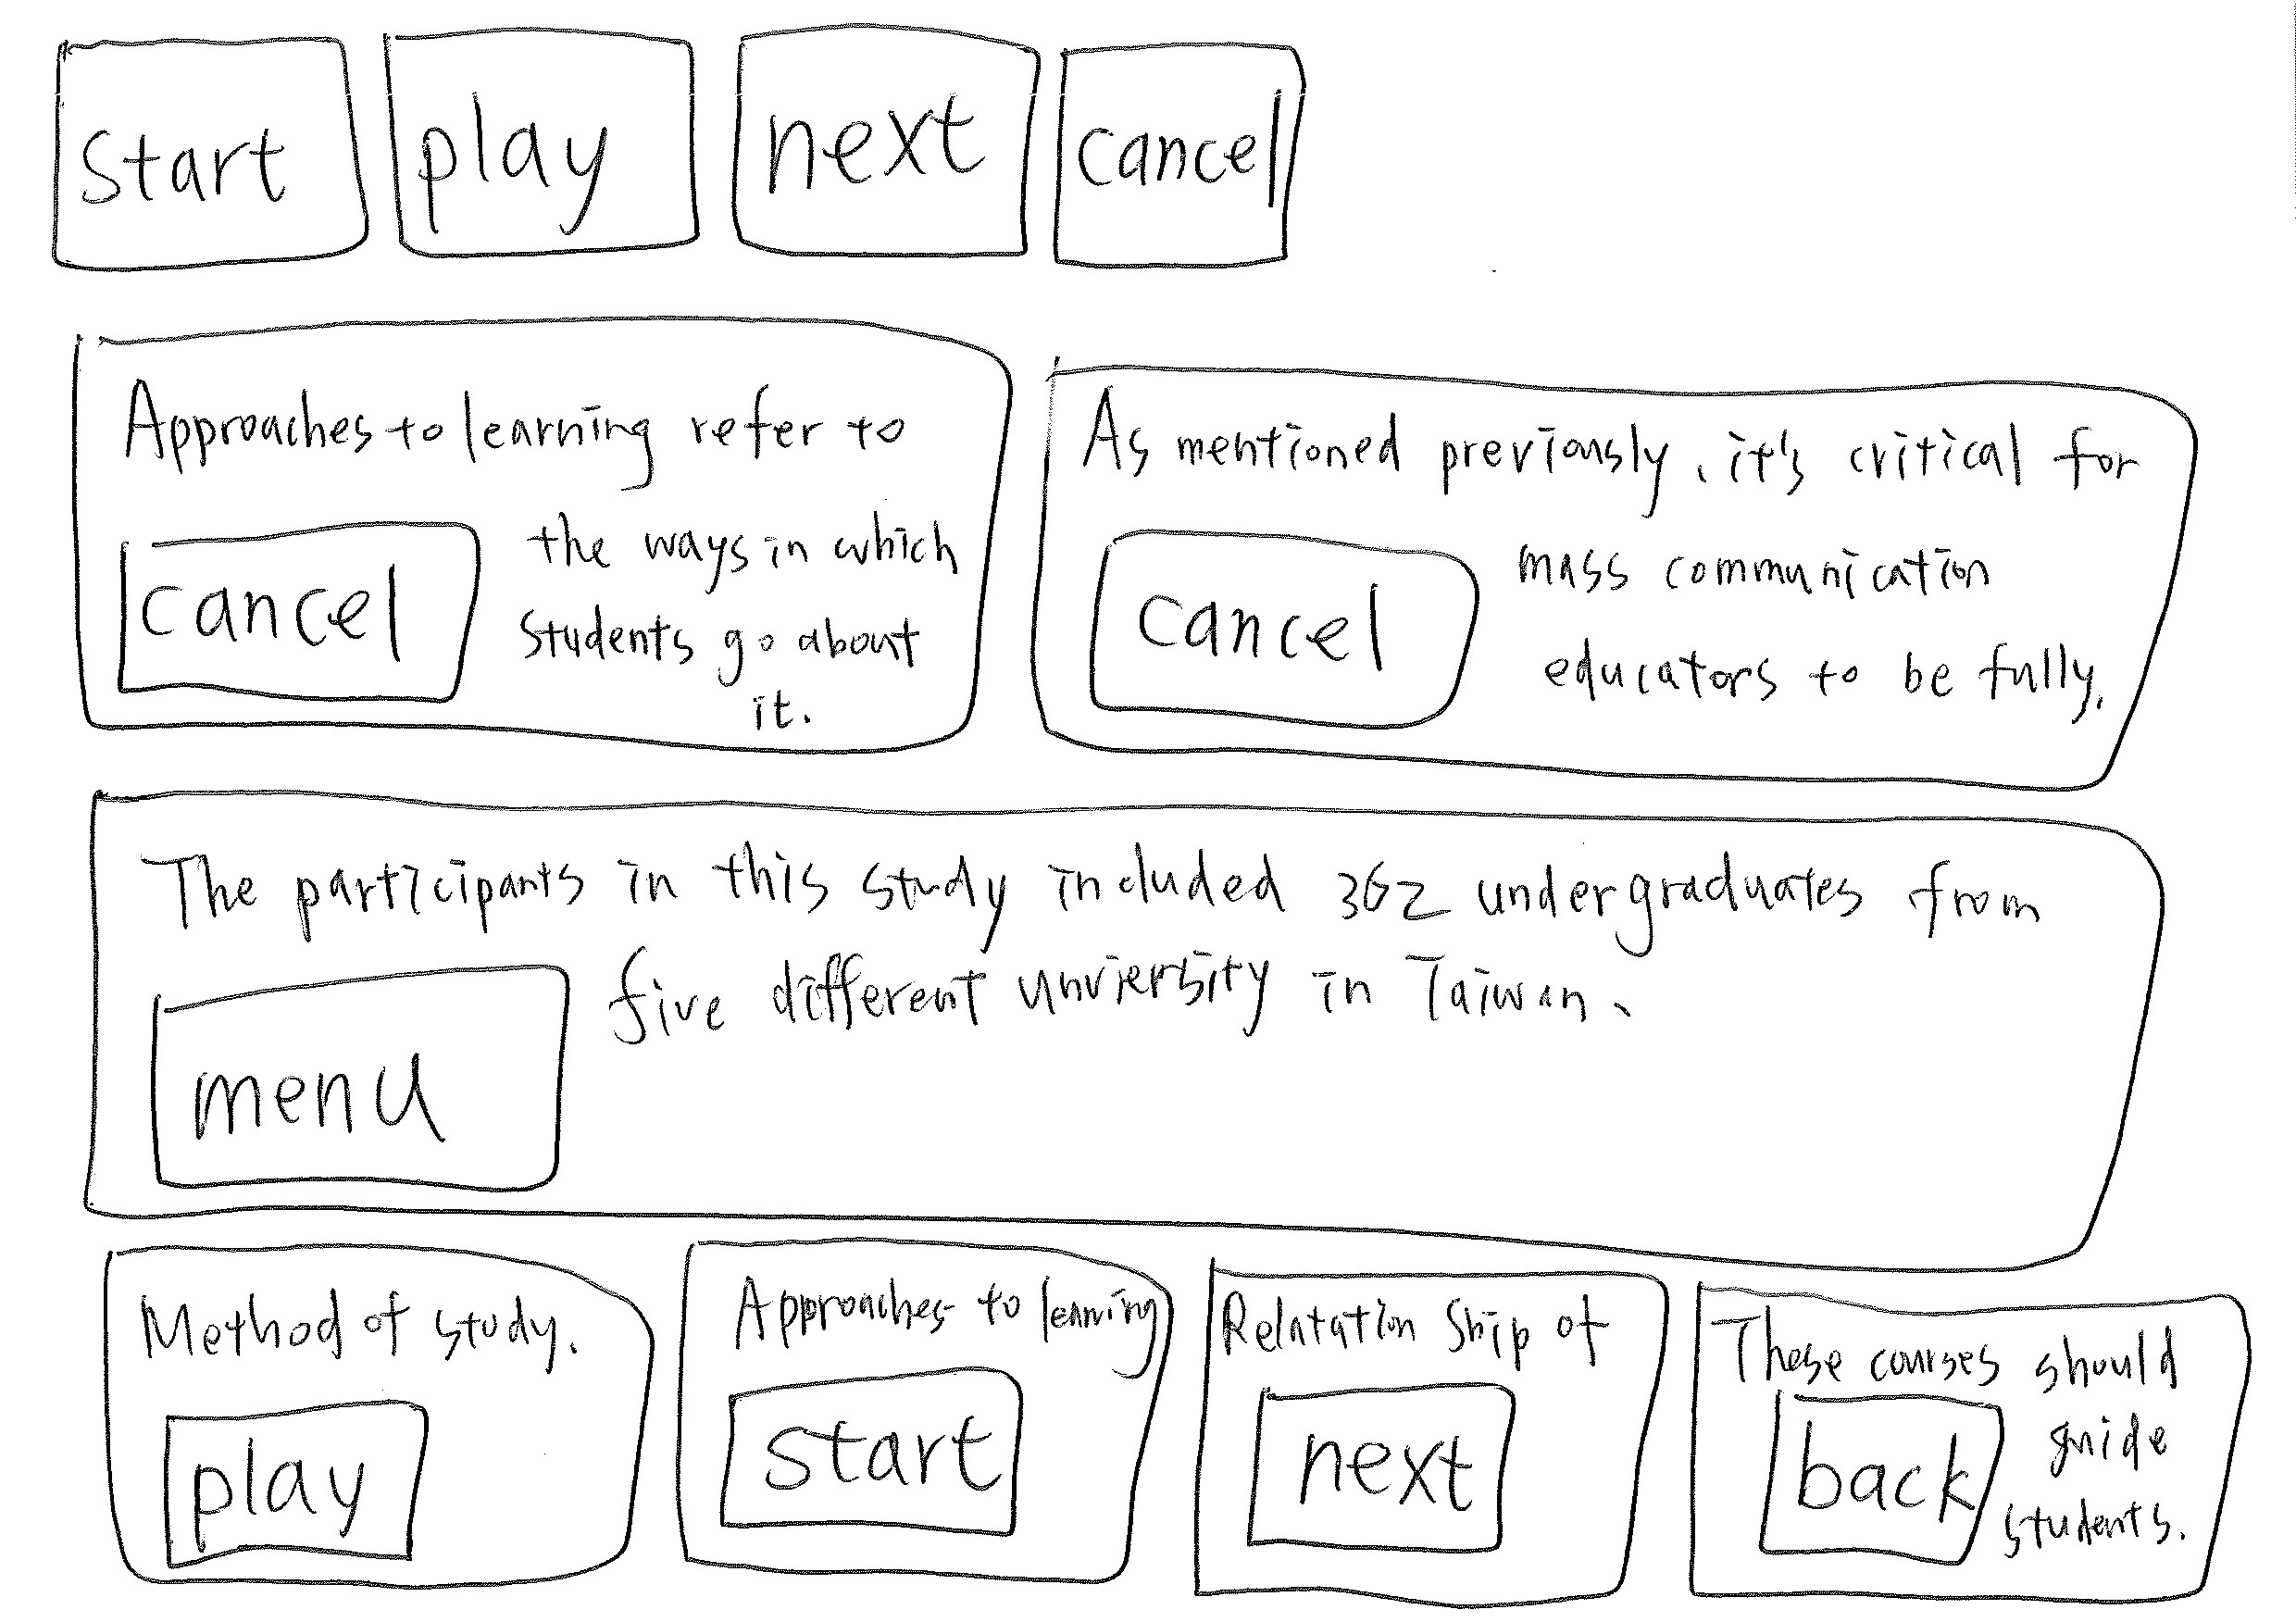 start play next cancel
Approaches to learning refer to
the ways in which
cancel
students go about
it.
As mentioned previously, it's critical for
mass communication
cancel
educators to be fully.
The participants in this study included 362 undergraduates from
five different unviersity in Taiwan.
menu
Method of study.
play
Approaches to leaning
start
Relatation Ship of
next
These courses should
guide
back
students.